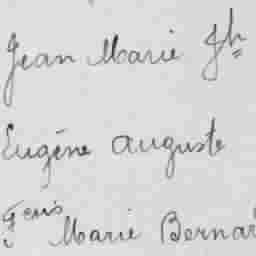 Jean Marie Jh
Eugène Auguste
Fcois Marie Bernar